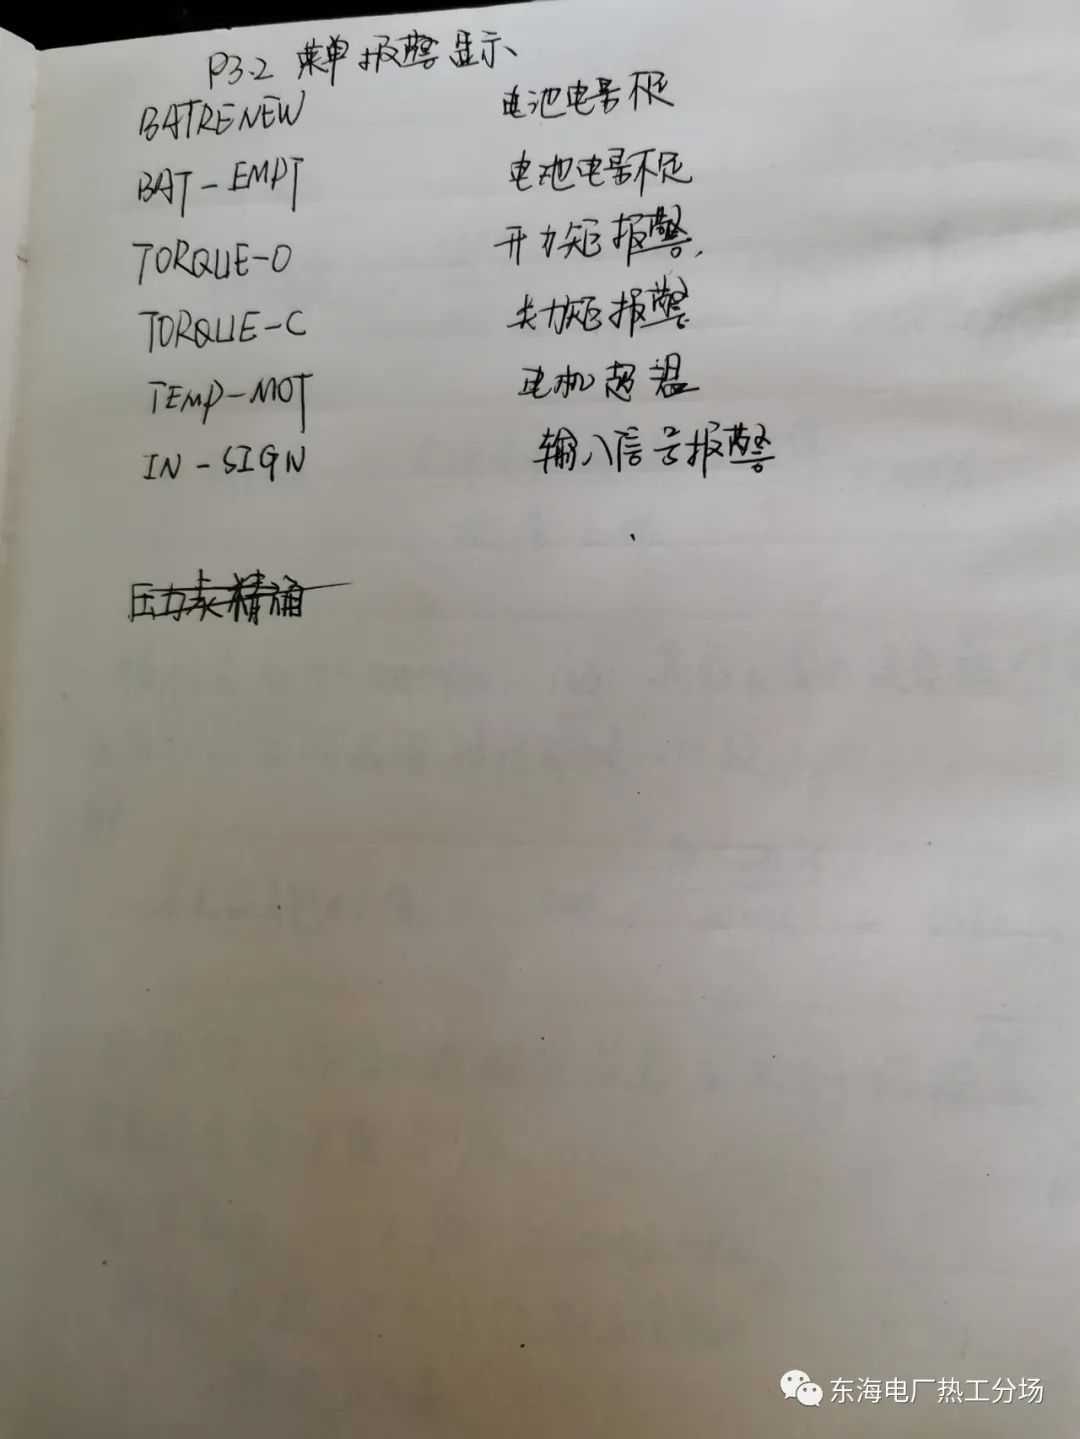 P3.2 菜单报警显示
BATRENEW 电池电量不足
BAT-EMPT 电池电量不足
TORQUE-O 开力矩报警.
TORQUE-C 关力矩报警
TEMP-MOT 电机超温
IN-SIGN 输入信号报警
压力表精
东海电厂热工分场